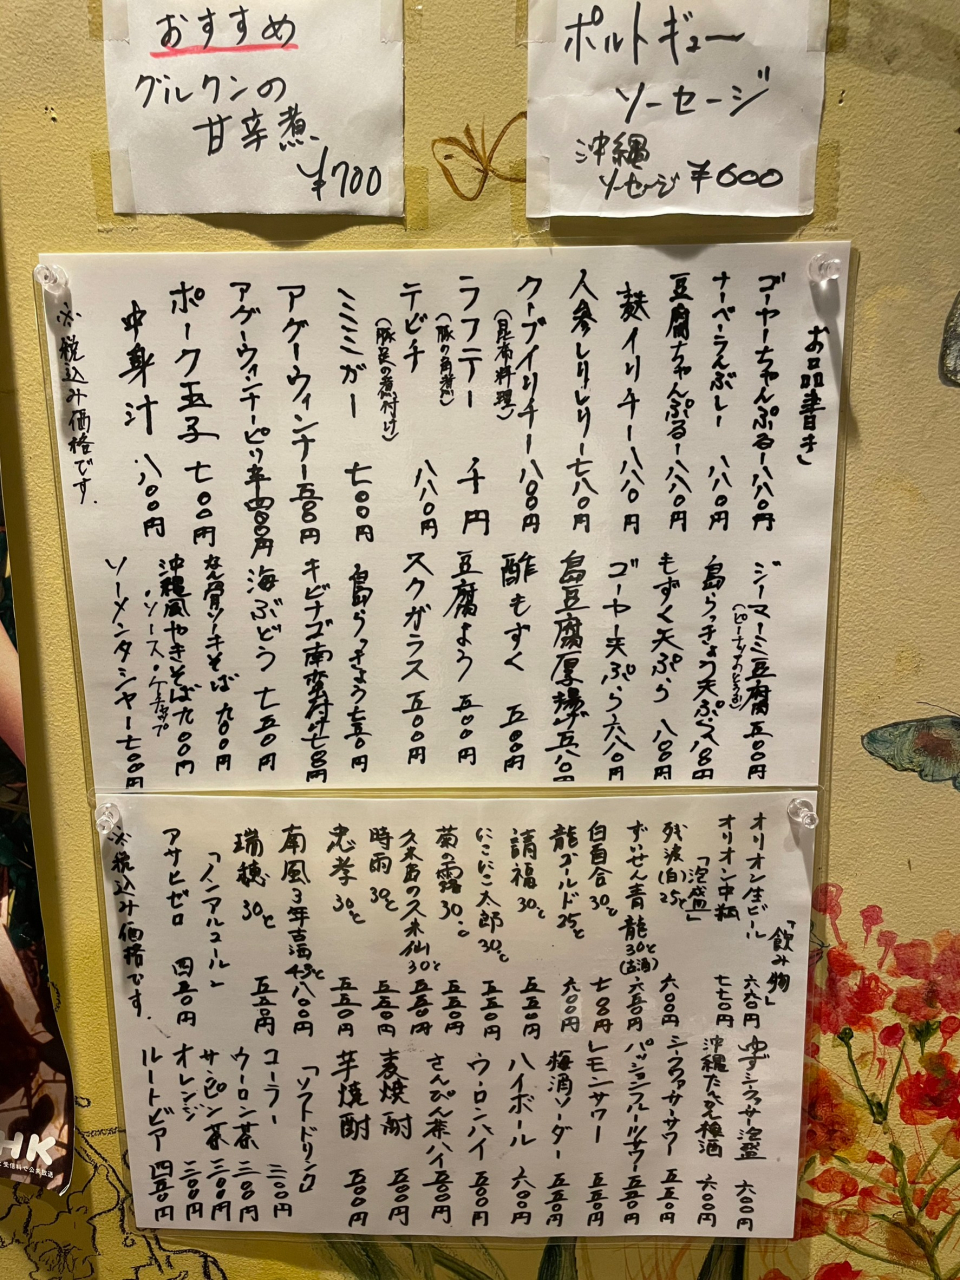 おすすめ
グルクンの
甘辛煮
¥700
ポルトギュー
ソーセージ
沖縄
ソーセージ ¥600
お品書き
ゴーヤーちゃんぷるー 八八〇円
ナーベーラんぶしー 八八〇円
豆腐ちゃんぷるー 八八〇円
麩イリチー 八八〇円
人参しりしりー 七八〇円
クーブイリチー 八〇〇円
(昆布料理)
ラフテー 千円
(豚の角煮)
テビチ 八八〇円
(豚足の煮付け)
ミミガー 七〇〇円
アグーウィンナー 五〇〇円
アグーウィンナーピリ辛 四〇〇円
ポーク玉子 七〇〇円
中身汁 八〇〇円
※税込み価格です.
ジーマーミ豆腐 五〇〇円
(ピーナッツのとうふ)
島らっきょう天ぷら 八八〇円
もずく天ぷら 八〇〇円
ゴーヤー天ぷら 六八〇円
島豆腐厚揚げ 五八〇円
酢もずく 五〇〇円
豆腐よう 五〇〇円
スクガラス 五〇〇円
島らっきょう 七五〇円
キビナゴ南蛮付け 七〇〇円
海ぶどう 七五〇円
なん骨ソーキそば 九〇〇円
沖縄風やきそば 九〇〇円
・ソース・ケチャップ
ソーメンタシヤー 七〇〇円
「飲み物」
オリオン生ビール 六六〇円
オリオン中瓶 七七〇円
「泡盛」
残波(白)25℃ 六〇〇円
ずいせん青龍30℃ 六五〇円
(古酒)
白百合30℃ 七〇〇円
龍ゴールド25℃ 六〇〇円
請福30℃ 五五〇円
にこにこ太郎30℃ 五五〇円
菊の露30℃ 五五〇円
久米島の久米仙30℃ 五五〇円
時雨30℃ 五五〇円
忠孝30℃ 五五〇円
南風3年古酒43℃ 八〇〇円
瑞穂30℃ 五五〇円
「ノンアルコール」
アサヒゼロ 四五〇円
※税込み価格です.
ゆずシークヮーサー泡盛 六〇〇円
沖縄 梅酒 六〇〇円
シークヮーサーサワー 五五〇円
パッションフルーツサワー 五五〇円
レモンサワー 五五〇円
梅酒ソーダー 五五〇円
ハイボール 六〇〇円
ウーロンハイ 五〇〇円
さんぴん茶ハイ 五〇〇円
麦焼酎 五〇〇円
芋焼酎 五〇〇円
「ソフトドリンク」
コーラー 三〇〇円
ウーロン茶 三〇〇円
サンピン茶 三〇〇円
オレンジ 三〇〇円
ルートビアー 四五〇円
HK